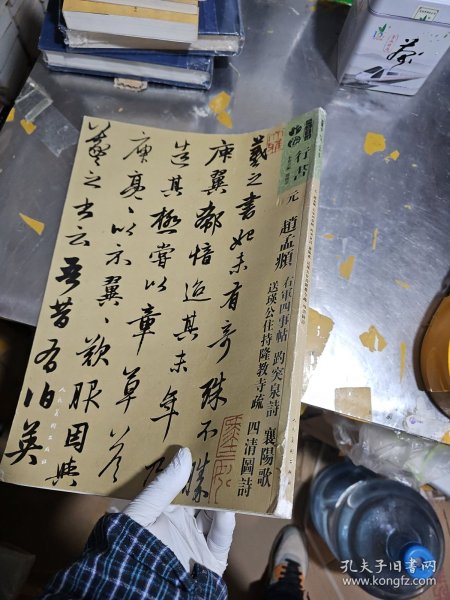 行書
元
趙孟頫
右軍四事帖 趵突泉詩 襄陽歌
送瑛公住持隆教寺疏 四清圖詩
羲之書始未有奇殊不勝
庾翼郗愔迨其末年乃
造其極嘗以章草答
庾亮亮以示翼翼歎服因與
羲之書云吾昔有伯英
人民美術出版社
茶
孔夫子旧书网
www.kongfz.com